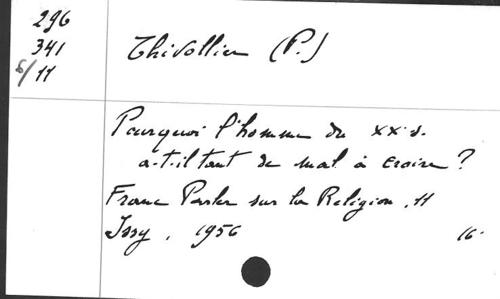 296
341
8/11
Thivollier (P.)
Pourquoi l'homme du XXe s.
a-t-il tant de mal à croire ?
Franc Parler sur la Religion, 11
Issy, 1956
16°